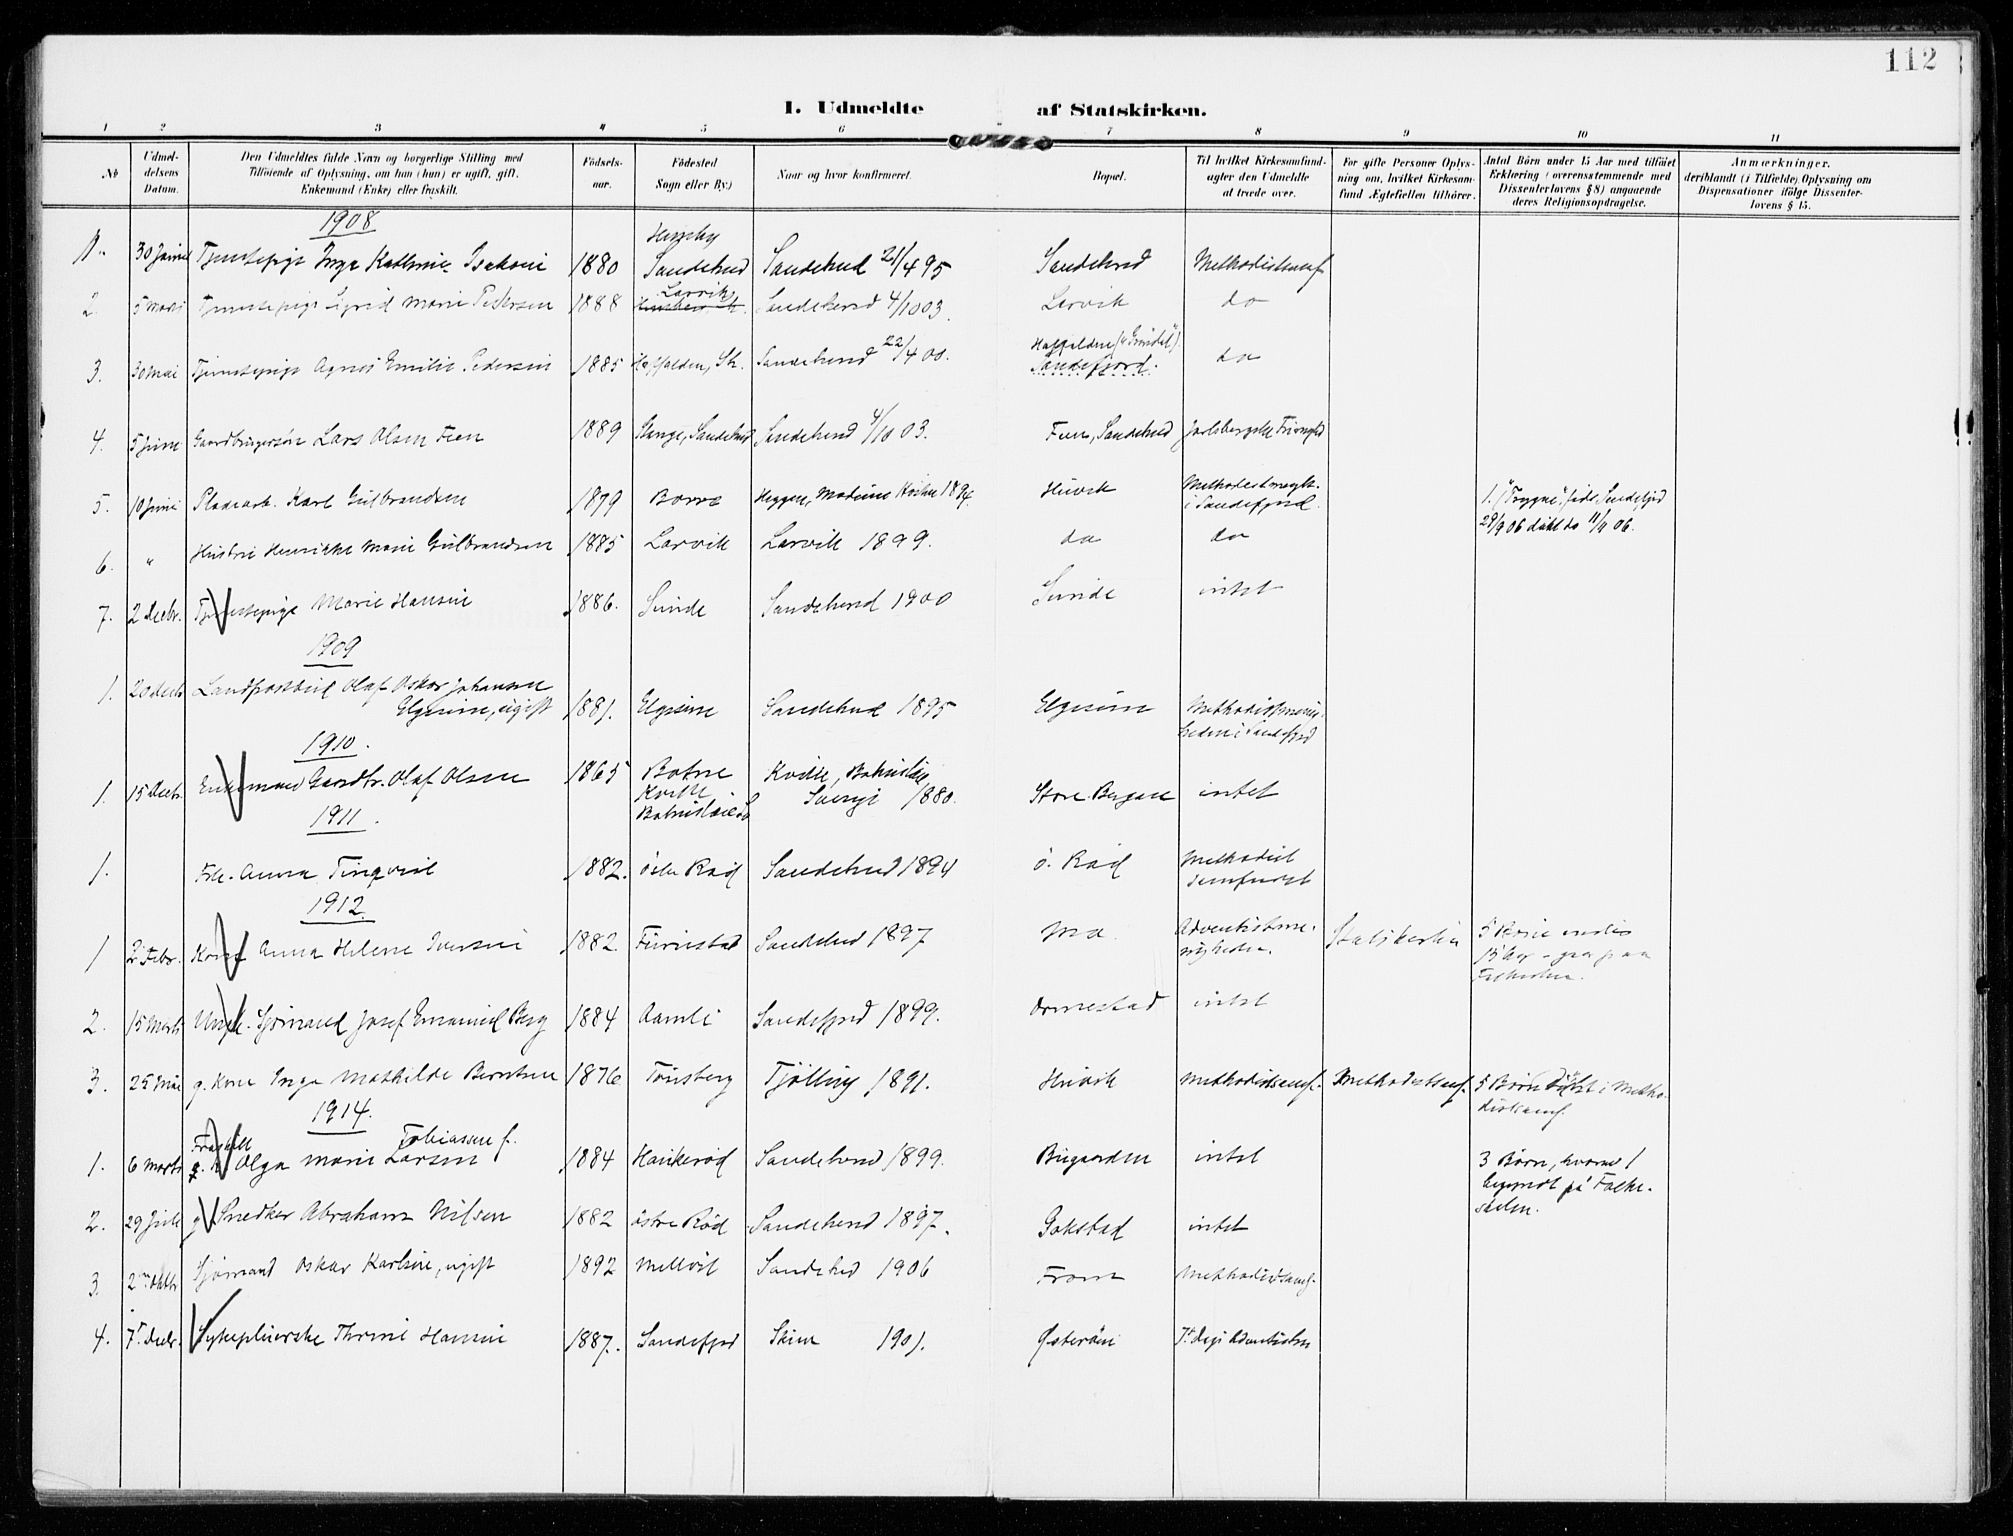 112
I. Udmeldte af Statskirken.
1 2 3 4 5 6 7 8 9 10 11
No
Udmeldelsens Datum.
Den Udmeldtes fulde Navn og borgerlige Stilling med
Tilföiende af Oplysning, om han (hun) er ugift, gift,
Enkemand (Enke) eller fraskilt.
Födselsaar.
Födested
Sogn eller By.)
Naar og hvor konfirmeret.
Bopæl.
Til hvilket Kirkesamfund
agter den Udmeldte
at træde over.
For gifte Personer Oplysning
om, hvilket Kirkesamfund
Ægtefællen tilhörer.
Antal Börn under 15 Aar med tilföiet
Erklæring (overensstemmende med
Dissenterlovens § 8) angaaende
deres Religionsopdragelse.
Anmærkninger,
deriblandt (i Tilfælde) Oplysning om
Dispensationer ifölge Dissenterlovens
§ 15.
1908
1. 30 Tjenstepige Inga Kathrine 1880 Sandeherred Sandeherred 21/4 95 Sandeherred Methodistsamf.
2. 5 Marts Tjenstepige Sigrid Marie Pedersen 1888 Larvik Sandeherred 4/10 03. Larvik do
3. 30 Mai Tjenstepige Agnes Emilie Pedersen 1885 Haffalden, Sh. Sandeherred 22/4 00. Sandefjord. do
4. 5 Juni Gaardbrugersøn Lars Olsen Feen 1889 Sandeherred 4/10 03. Feen, Sandeherred Jarlsbergske Frimghd
5. 10 Juni Pladearb. Karl Gulbrandsen 1879 Borre 1894. Huvik Methodistmengh. i Sandefjord.
28/9 06 døbt do 11/11 06.
6. " Hustru Henrikke Marie Gulbrandsen 1885 Larvik Larvik 1899. do do
7. 2 Decbr. Tjenstepige Marie Hansen 1886. Sunde Sandeherred 1900 Sunde intet
1909
1. 20 Decbr Landpostbud Olaf Oskar Johansen
Elgesem, ugift 1881. Elgesem Sandeherred 1895 Elgesem Methodistmenigheden i Sandefjord
1910.
1. 15 Decbr. Enkemand Gaardbr. Olaf Olsen 1865 Kville Kville, Sverige 1880. Store Bergan intet
1911.
1. Frk. Anna 1882. Råd Sandeherred 1894 Ö. Råd Methodist samfundet
1912.
1 2 Febr. Kone Anna Helene Iversen 1882 Furustad Sandeherred 1897 Mo Adventistmenigheden. Statskirken 5
2. 15 Marts Ungk. Sjømand Josef Emanuel Berg 1884 Aamli Sandefjord 1899. Ormestad intet
3. 25 Mai g. kone Inga Mathilde Berntsen 1876 Tönsberg Tjölling 1891. Huvik Methodistsamf. Methodistsamf. 5 Børn Døbt i Methodistsamf.
1914.
1. 6 Marts Fraskilt Olga Marie Larsen Tobiassen f. 1884 Haukeröd Sandeherred 1899. Bugaarden intet 3 Børn, hvoraf 1
begyndt på Folkeskolen.
2. 29 Juli g. Snedker Abraham Nilsen 1882 östre Röd Sandeherred 1897. Gokstad intet
3. Sjömand Oskar Karlsen, ugift 1892 Sandeherred 1906 Methodistsamf.
4. 7. Decbr. Sykepleierske Thrine Hansen 1887. Sandefjord Skien 1901. Østeröen 7. Dags Adventisten